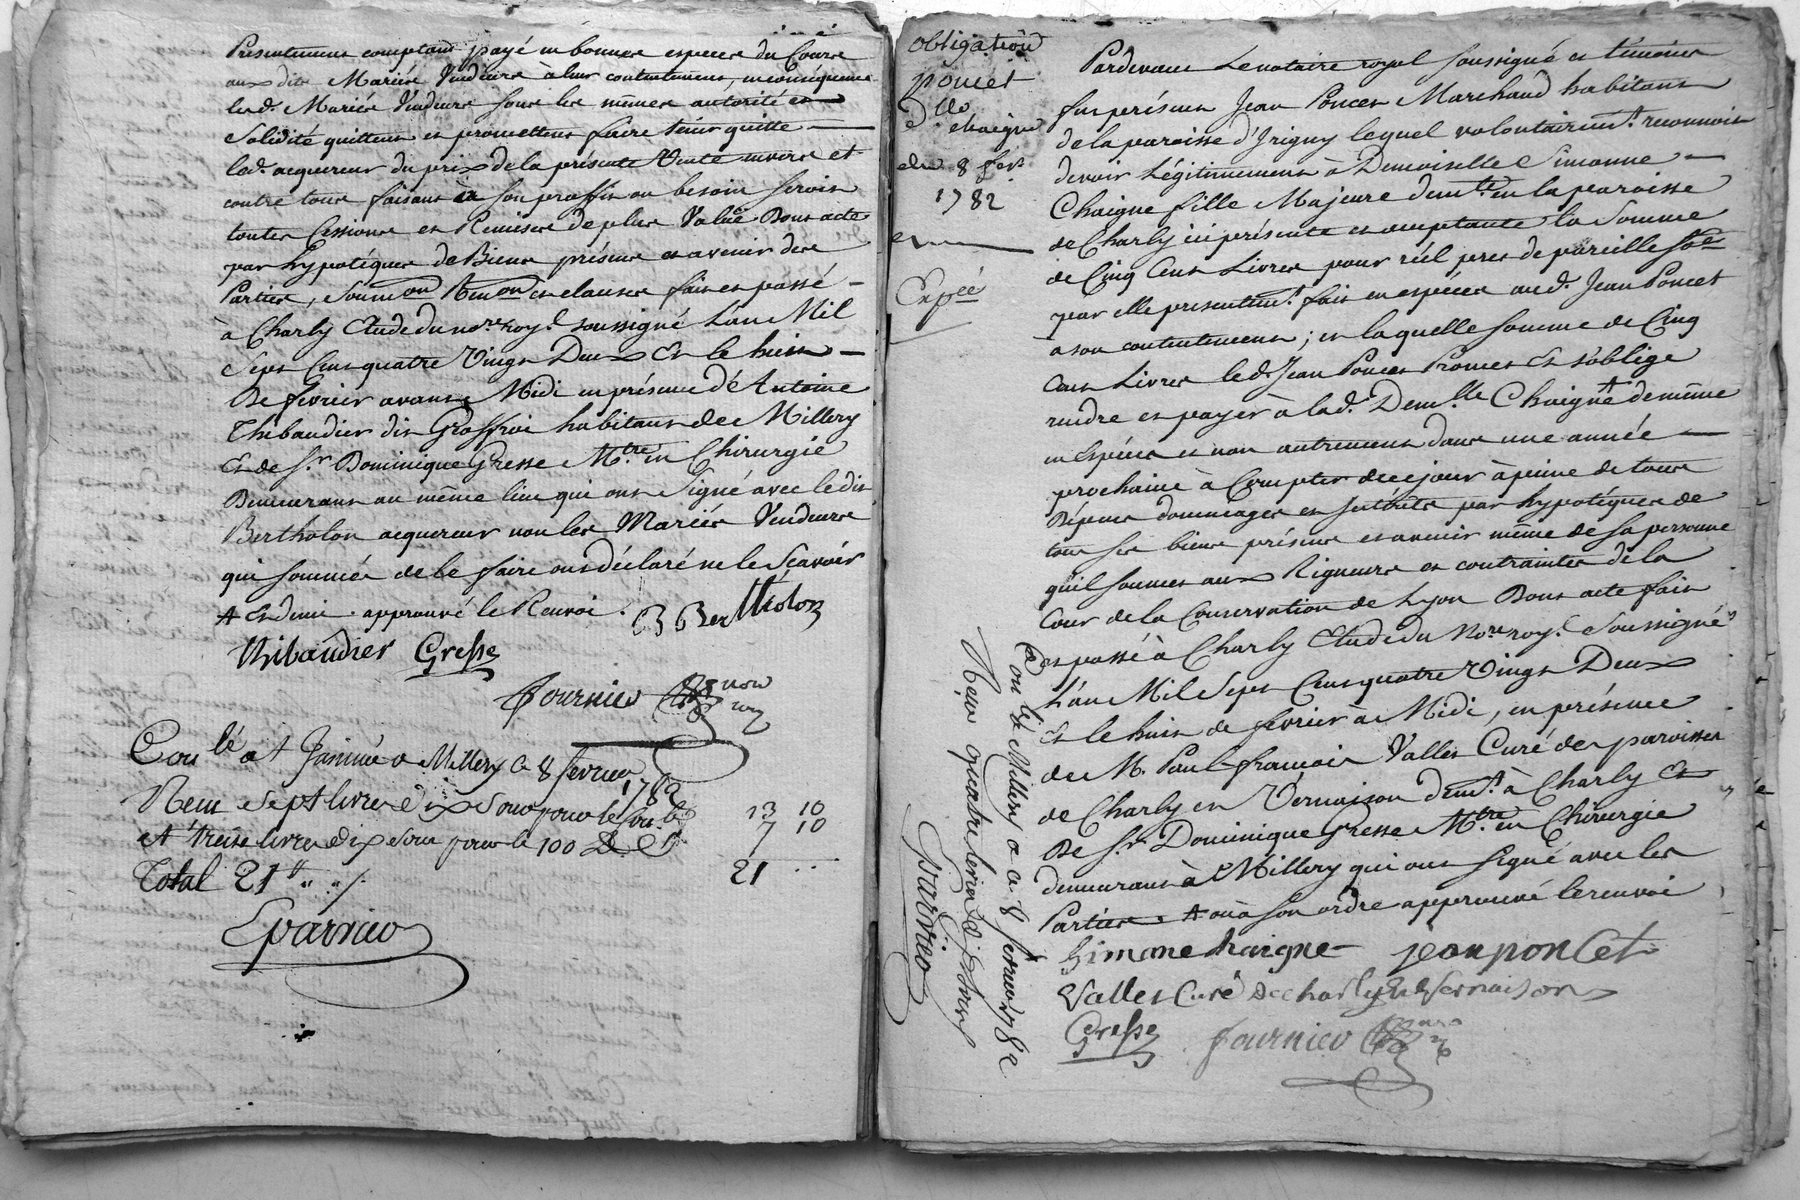 Présentement comptant payé en bonnes espèces du Cours
aux dits Mariés Vendeurs à leur contentement, en conséquence
lesd. Mariés Vendeurs sous les mêmes autorité et
Solidité quittent et promettent faire tenir quitte
led. acquereur du prix de la présente Vente envers et
contre tous faisant à son proffit au besoin
toutes Cessions et Remises de plus Valüe Dont acte
par hypotéques de Biens présens et avenir des
Parties, Soumon Renon et clauses fait et passé
à Charly Etude du nore. roy.l soussigné L'an Mil
Sept Cent quatre Vingt Deux Et le huit
De fevrier avant Midi en présence d'Antoine
Thibaudier dit Groffroi habitant de Millery
Et de S.r Dominique Gresse M.tre en Chirurgie
Demeurant au même lieu qui ont Signé avec ledit
Bertholon acquereur non les Mariés Vendeurs
qui sommés de le faire ont déclaré ne le Scavoir
A Et demi approuvé le Renvoi.
B Berthôlon
thibaudier Gresse
fournier no.re roy
Con.lé et Insinué a Millery le 8 fevrier
1782
Reçu Sept livres dix sous pour le
et treize livres dix sous pour le 100 De
13 10
7 10
Total 21
21
Lvarnier
obligation
poncet
a dlle
chaigne
du 8 fev.r
1782
Expéé
Pardevant Le notaire royal soussigné et témoins
fut présent Jean Poncet Marchand habitant
de la paroisse d'Irigny lequel volontairem.t reconnoit
devoir Légitimement à Demoiselle Simonne
Chaigne fille Majeure dem.te en la paroisse
de Charly ici présente et acceptante la Somme
de Cinq Cent Livres pour réel prêt de pareille
par elle presentem.t fait en espéces aud. Jean Poncet
a son contentement; et laquelle somme de Cinq
Cent Livres led. Jean Poncet Promet Et s'oblige
rendre et payer à lad. Dem.lle Chaigne A de même
en espéces et non autrement dans une année
prochaine à Compter de ce jour à peine de tous
Dépens dommages et intérêts par hypotéques de
tous ses biens présens et avenir même de sa personne
quil soumet aux Rigueurs et contraintes de la
Cour de la Conservation de Lyon Dont acte fait
et passé à Charly Etude du No.re roy.l Soussigné
L'an Mil Sept Cent quatre Vingt Deux
Et le huit de fevrier à Midi, en présence
de M. Paul françois Valles Curé des paroisses
de Charly et Vernaison dem.t à Charly Et
De S.r Dominique Gresse M.tre en Chirurgie
demeurant à Millery qui ont signé avec les
Parties. A où à son ordre approuvé le renvoi
Simone chaigne jean poncet
Valles Curé de charly et Vernaison
Gresse fournier
Con.lé a Millery ce 8 fevrier 1782
Reçu quatre livres dix sous
Lvarnier